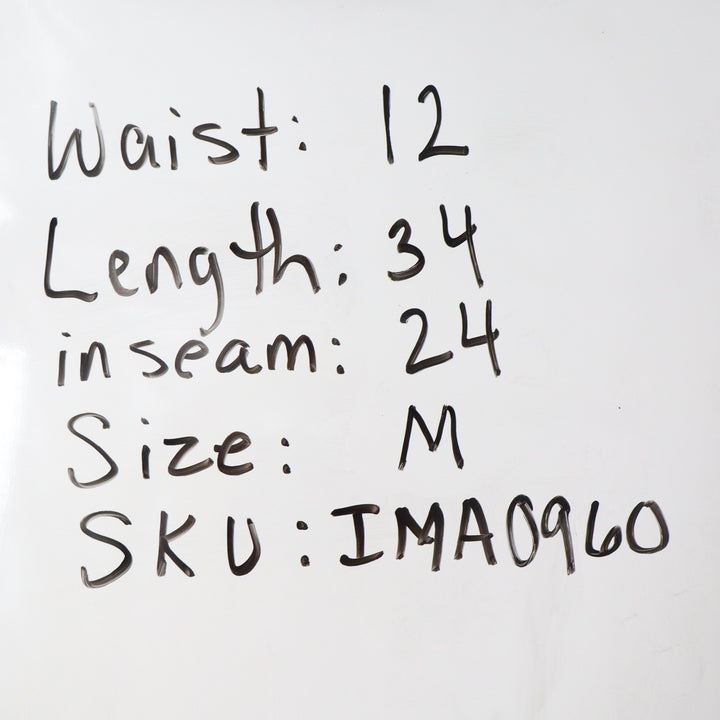 Waist: 12
Length: 34
inseam: 24
Size: M
SKU: IMA0960